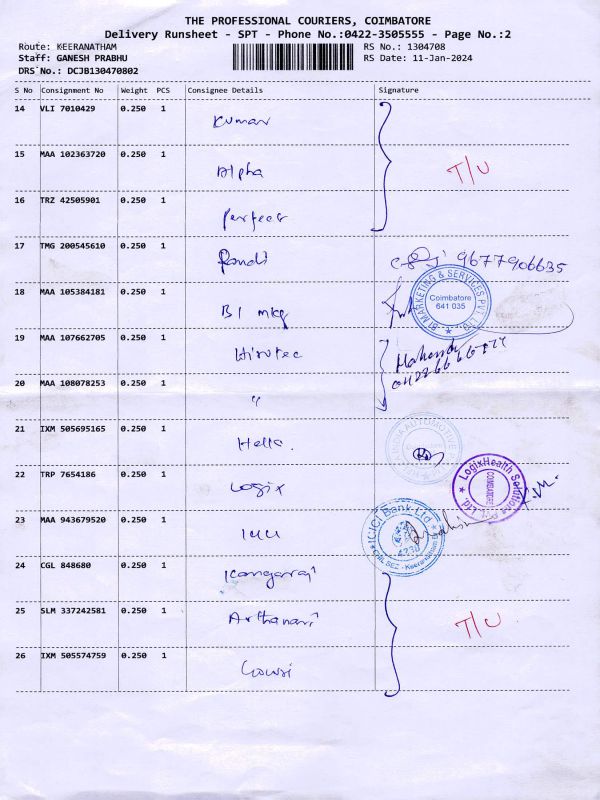 THE PROFESSIONAL COURIERS, COIMBATORE
Delivery Runsheet - SPT - Phone No.:0422-3505555 - Page No.:2
Route: KEERANATHAM RS No.: 1304708
Staff: GANESH PRABHU RS Date: 11-Jan-2024
DRS No.: DCJB130470802
S No Consignment No Weight PCS Consignee Details Signature
14 VLI 7010429 0.250 1 Kumar
15 MAA 102363720 0.250 1 Alpha T/U
16 TRZ 42505901 0.250 1 Perfect
17 TMG 200545610 0.250 1 Pandi 9677906635
18 MAA 105384181 0.250 1 BI mkg
BI MARKETING & SERVICES PVT. LTD.
Coimbatore
641 035
19 MAA 107662705 0.250 1 Hirotec
20 MAA 108078253 0.250 1 "
21 IXM 505695165 0.250 1 Hella.
22 TRP 7654186 0.250 1 Logix
LogixHealth Solutions Pvt. Ltd.
COIMBATORE
23 MAA 943679520 0.250 1
ICICI Bank Ltd
4230
24 CGL 848680 0.250 1 Kangaraj
25 SLM 337242581 0.250 1 Arthanari T/U
26 IXM 505574759 0.250 1 Gowri